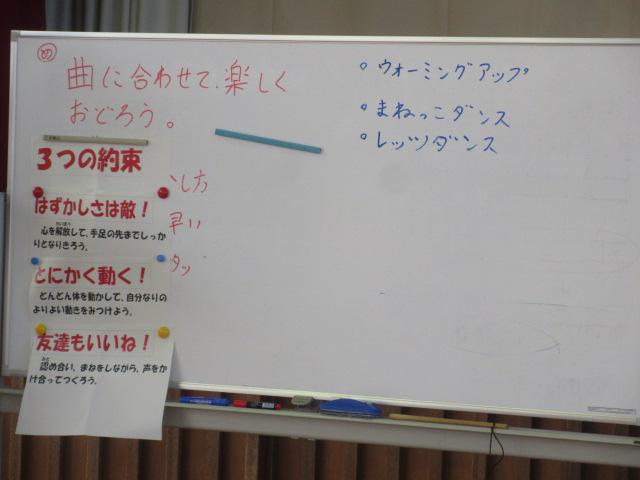 め
曲に合わせて、楽しく
おどろう。
。ウォーミングアップ
。まねっこダンス
。レッツダンス
3つの約束
はずかしさは敵！
かいほう
心を解放して、手足の先までしっか
りとなりきろう。
とにかく動く！
どんどん体を動かして、自分なりの
よりよい動きをみつけよう。
友達もいいね！
みと
認め合い、まねをしながら、声をか
け合ってつくろう。
し方
早い
タッ